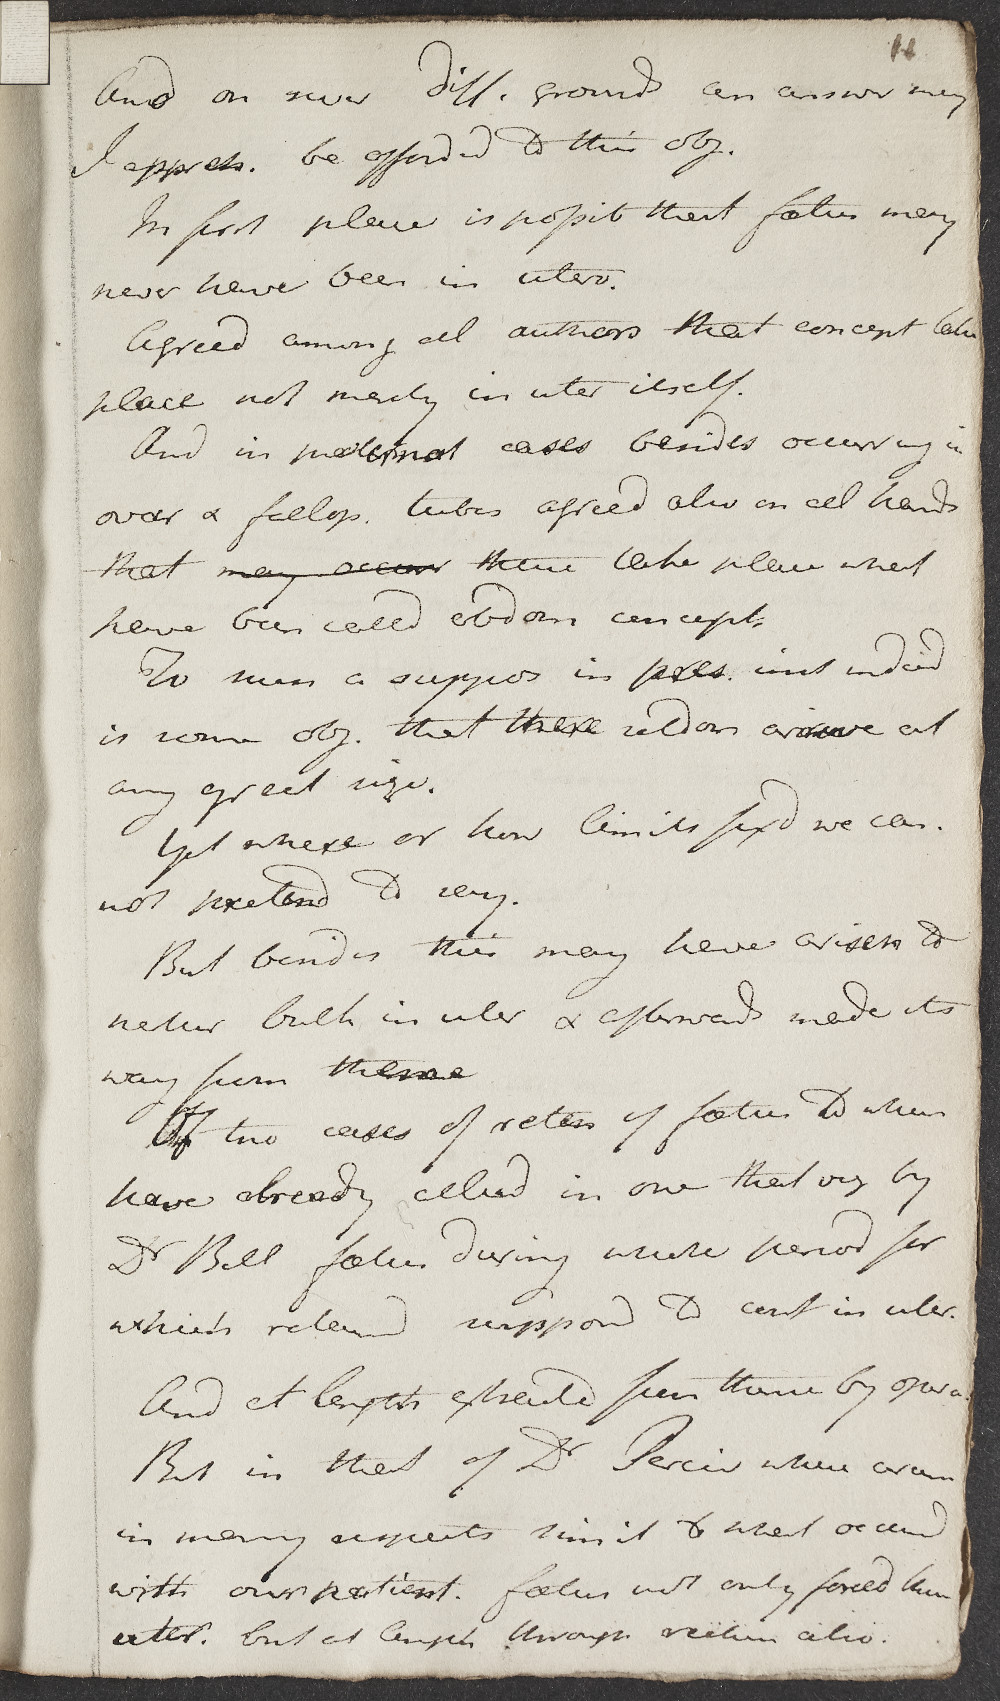 11
And on sever diff. grounds an answer may
I appreh. be afforded to this obj.
In first place is possib that fœtus may
never have been in utero.
Agreed among all authors that concept take
place not merely in uter itself.
And in cases besides occurring in
ovar & fallop. tubes agreed also on all hands
that may occur there take place what
have been called abdom concept.
To such a suppos in pres. inst indeed
is some obj. that these seldom arrive at
any great size.
Yet where or how limits fixd we can.
not pretend to say.
But besides this may have arisen to
natur bulk in uter & afterwards made its
way from thence
Of two cases of reten of fœtus to when
have already allud in one that by
Dr Bell fœtus during whole period for
which retaind supposd to cont in uter.
And at length extracted from thence by opera
But in that of Dr where
in many respects simil to what occurd
with our patient. fœtus not only forced from
uter. but at length through rectum also.